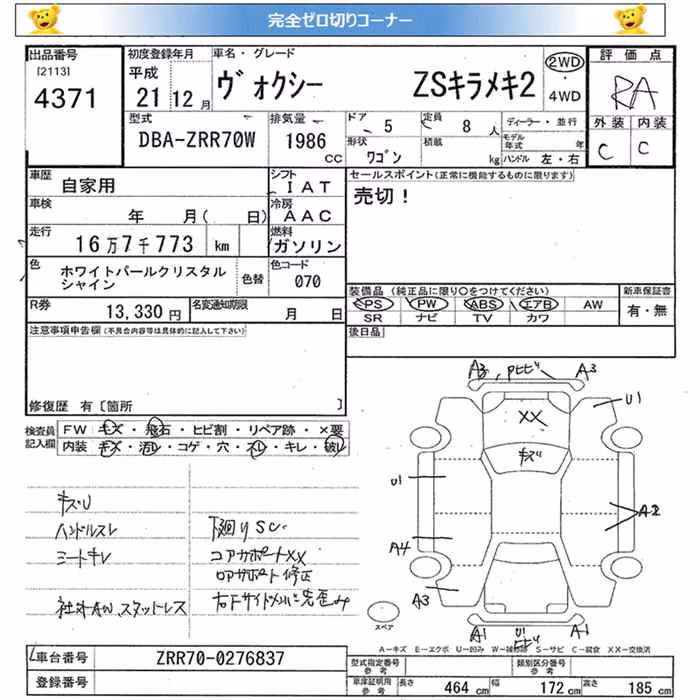 完全ゼロ切りコーナー
出品番号 [2113] 4371
初度登録年月 平成 21年 12月
車名・グレード ヴォクシー ZSキラメキ2
2WD
4WD
評価点 RA
外装 C 内装 C
型式 DBA-ZRR70W
排気量 1986 cc
ドア 5
定員 8 人
形状 ワゴン
積載 kg
ディーラー・並行
モデル年式 年
ハンドル 左・右
車歴 自家用
シフト IAT
車検 年 月( 日)
冷房 AAC
走行 16万7千773 km
燃料 ガソリン
色 ホワイトパールクリスタルシャイン
色替
色コード 070
R券 13,330円
名変通知期限 月 日
セールスポイント(正常に機能するものに限ります)
売切!
装備品(純正品に限り○をつけてください)
PS PW ABS エアB AW
SR ナビ TV カワ
新車保証書 有・無
後日品
注意事項申告欄(不具合内容等は具体的に記入して下さい)
修復歴 有〔箇所 〕
検査員記入欄
FW キズ・飛石・ヒビ割・リペア跡・×要
内装 キズ・汚レ・コゲ・穴・スレ・キレ・破レ
キズU
ハンドルスレ
シートキレ
社外AW、スタットレス
下廻りSC
コアサポートXX
ロアサポート修正
A3
A3
U1
XX
キズ
U1
A2
A4
A3
A1
U1
A1
スペア
A-キズ E-エクボ U-凹み W-補修跡 S-サビ C-腐食 XX-交換済
車台番号 ZRR70-0276837
登録番号
型式指定番号 参考
類別区分番号 参考
車庫証明用 参考 長さ 464cm 幅 172cm 高さ 185cm